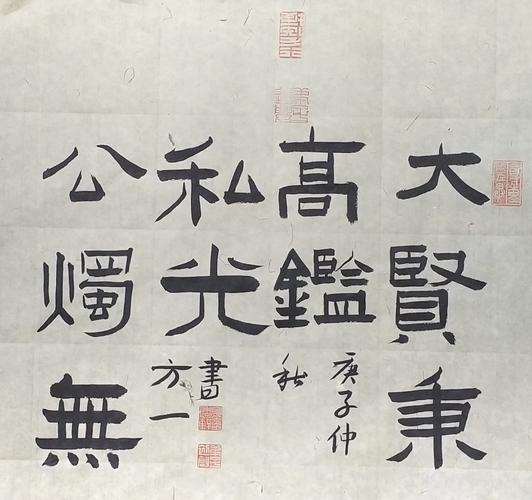 大賢秉
高鑑
庚子仲
秋
公燭無
私光
方一
書